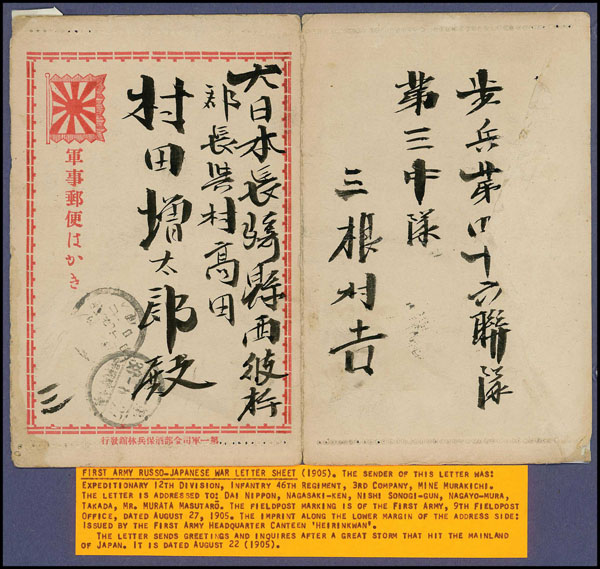 軍事郵便はかき
大日本長崎縣西彼杵
郡長與村高田
村田増太郎殿
第一軍司令部酒保兵林館發行
歩兵第四十六聯隊
第三中隊
三根村吉
FIRST ARMY RUSSO-JAPANESE WAR LETTER SHEET (1905). THE SENDER OF THIS LETTER WAS:
EXPEDITIONARY 12TH DIVISION, INFANTRY 46TH REGIMENT, 3RD COMPANY, MINE MURAKICHI.
THE LETTER IS ADDRESSED TO: DAI NIPPON, NAGASAKI-KEN, NISHI SONOGI-GUN, NAGAYO-MURA,
TAKADA, MR. MURATA MASUTARŌ. THE FIELDPOST MARKING IS OF THE FIRST ARMY, 9TH FIELDPOST
OFFICE, DATED AUGUST 27, 1905. THE IMPRINT ALONG THE LOWER MARGIN OF THE ADDRESS SIDE:
ISSUED BY THE FIRST ARMY HEADQUARTER CANTEEN 'HEIRINKWAN'.
THE LETTER SENDS GREETINGS AND INQUIRES AFTER A GREAT STORM THAT HIT THE MAINLAND
OF JAPAN. IT IS DATED AUGUST 22 (1905).